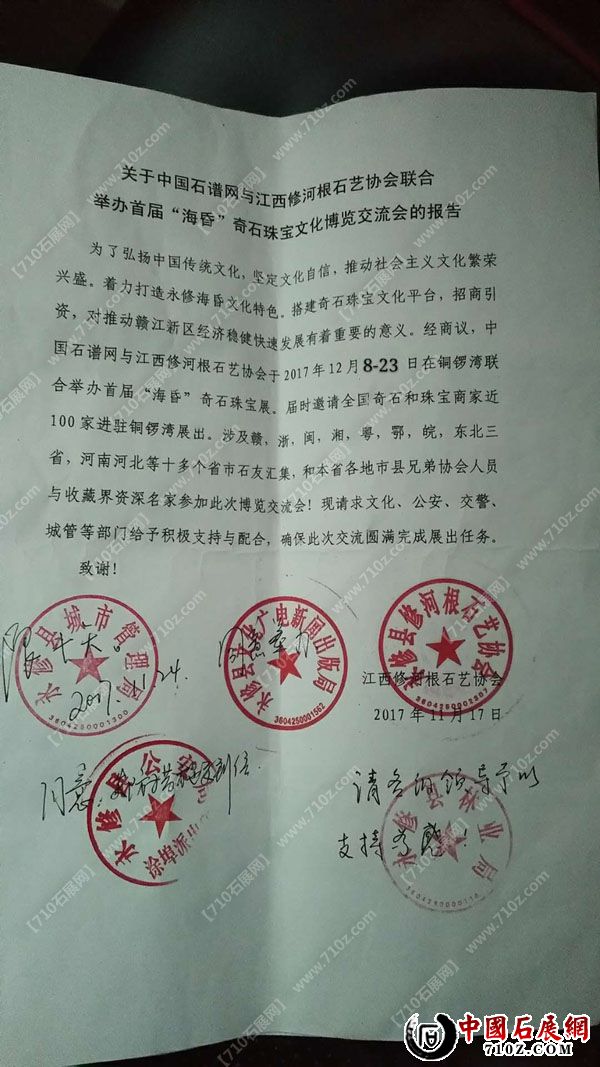 关于中国石谱网与江西修河根石艺协会联合
举办首届“海昏”奇石珠宝文化博览交流会的报告
为了弘扬中国传统文化，坚定文化自信，推动社会主义文化繁荣
兴盛。着力打造永修海昏文化特色。搭建奇石珠宝文化平台，招商引
资，对推动赣江新区经济稳健快速发展有着重要的意义。经商议，中
国石谱网与江西修河根石艺协会于2017年12月8-23日在铜锣湾联
合举办首届“海昏”奇石珠宝展。届时邀请全国奇石和珠宝商家近
100家进驻铜锣湾展出。涉及赣，浙，闽，湘，粤，鄂，皖，东北三
省，河南河北等十多个省市石友汇集，和本省各地市县兄弟协会人员
与收藏界资深名家参加此次博览交流会！现请求文化、公安、交警、
城管等部门给予积极支持与配合，确保此次交流圆满完成展出任务。
致谢！
永修县城市管理局
3604260001300
2017.11.24.
永修县文化广电新闻出版局
3604250001562
永修县修河根石艺协会
江西修河根石艺协会
2017年11月17日
同意
永修县公安
涂埠派出
请各位领导予以
支持为感！
永修县林业局
【710石展网】 www.710z.com
中國石展網
710Z.COM